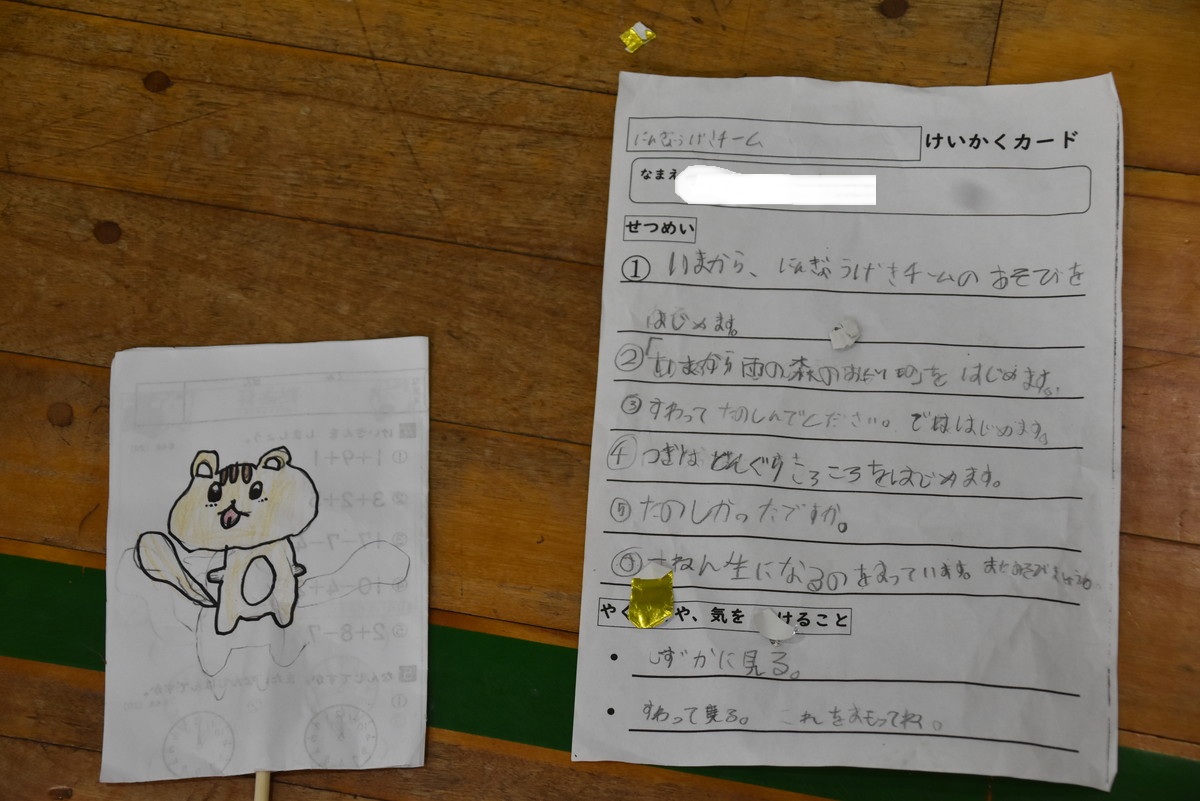 にんぎょうげきチーム けいかくカード
なまえ
せつめい
① いまから、にんぎょうげきチームの あそびを
はじめます。
②「いまから雨の森の を はじめます。
③ すわって たのしんでください。でははじめます。
④ つぎは どんぐりころころをはじめます。
⑤ たのしかったですか。
ねん生になるのをまっています。
やく や、気を けること
・ しずかに見る。
・ すわって見る。 これをまもってね。
けいさんを しましょう。
① 1+9+1
② 3+2+
③ 17-7-
④ 10-4+
⑤ 2+8-7
①